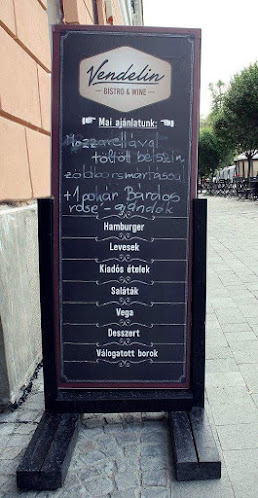 Vendelin
BISTRO & WINE
Mai ajánlatunk:
Mozzarellával
töltött bélszín
zöldborsmártással
+1 pohár Bárdos
rosé - ajándék
Hamburger
Levesek
Kiadós ételek
Saláták
Vega
Desszert
Válogatott borok